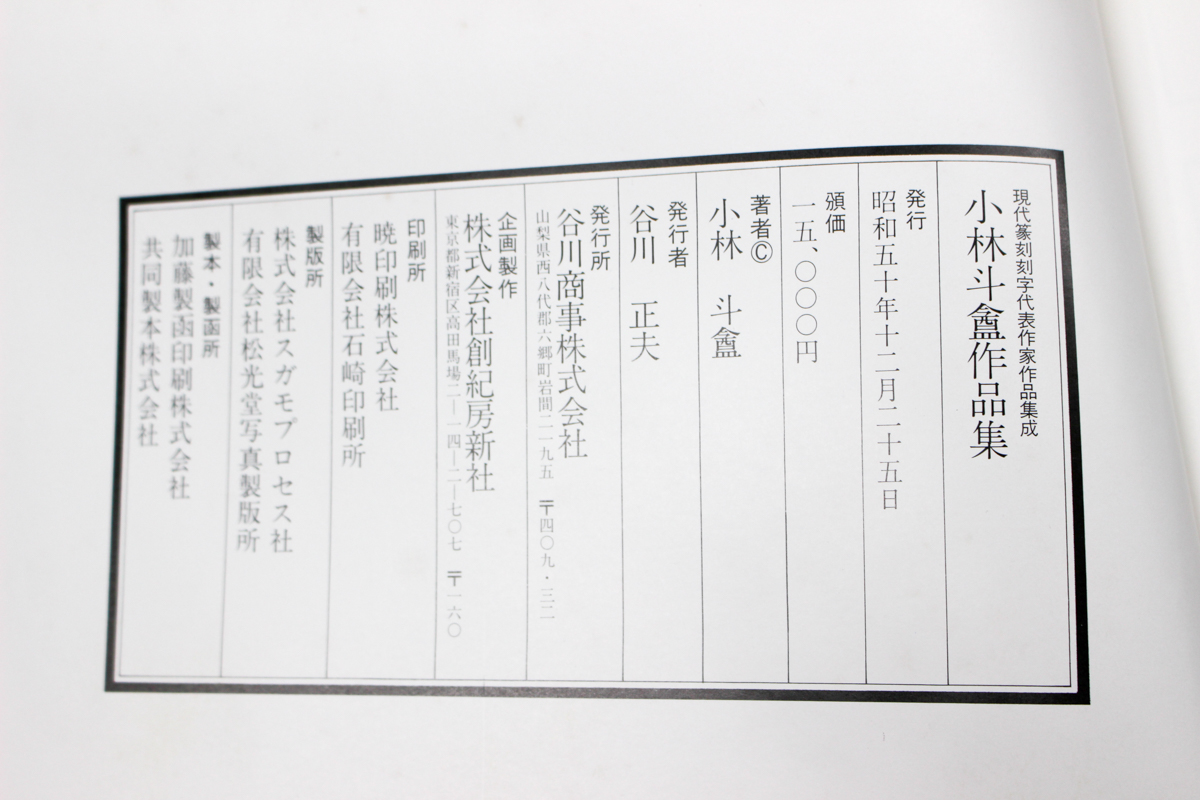 現代篆刻刻字代表作家作品集成
小林斗盦作品集
発行
昭和五十年十二月二十五日
頒価
一五、〇〇〇円
著者©
小林 斗盦
発行者
谷川 正夫
発行所
谷川商事株式会社
山梨県西八代郡六郷町岩間二一九五 〒四〇九・三二
企画製作
株式会社創紀房新社
東京都新宿区高田馬場二―一四―二―七〇七 〒一六〇
印刷所
暁印刷株式会社
有限会社石崎印刷所
製版所
株式会社スガモプロセス社
有限会社松光堂写真製版所
製本・製函所
加藤製函印刷株式会社
共同製本株式会社